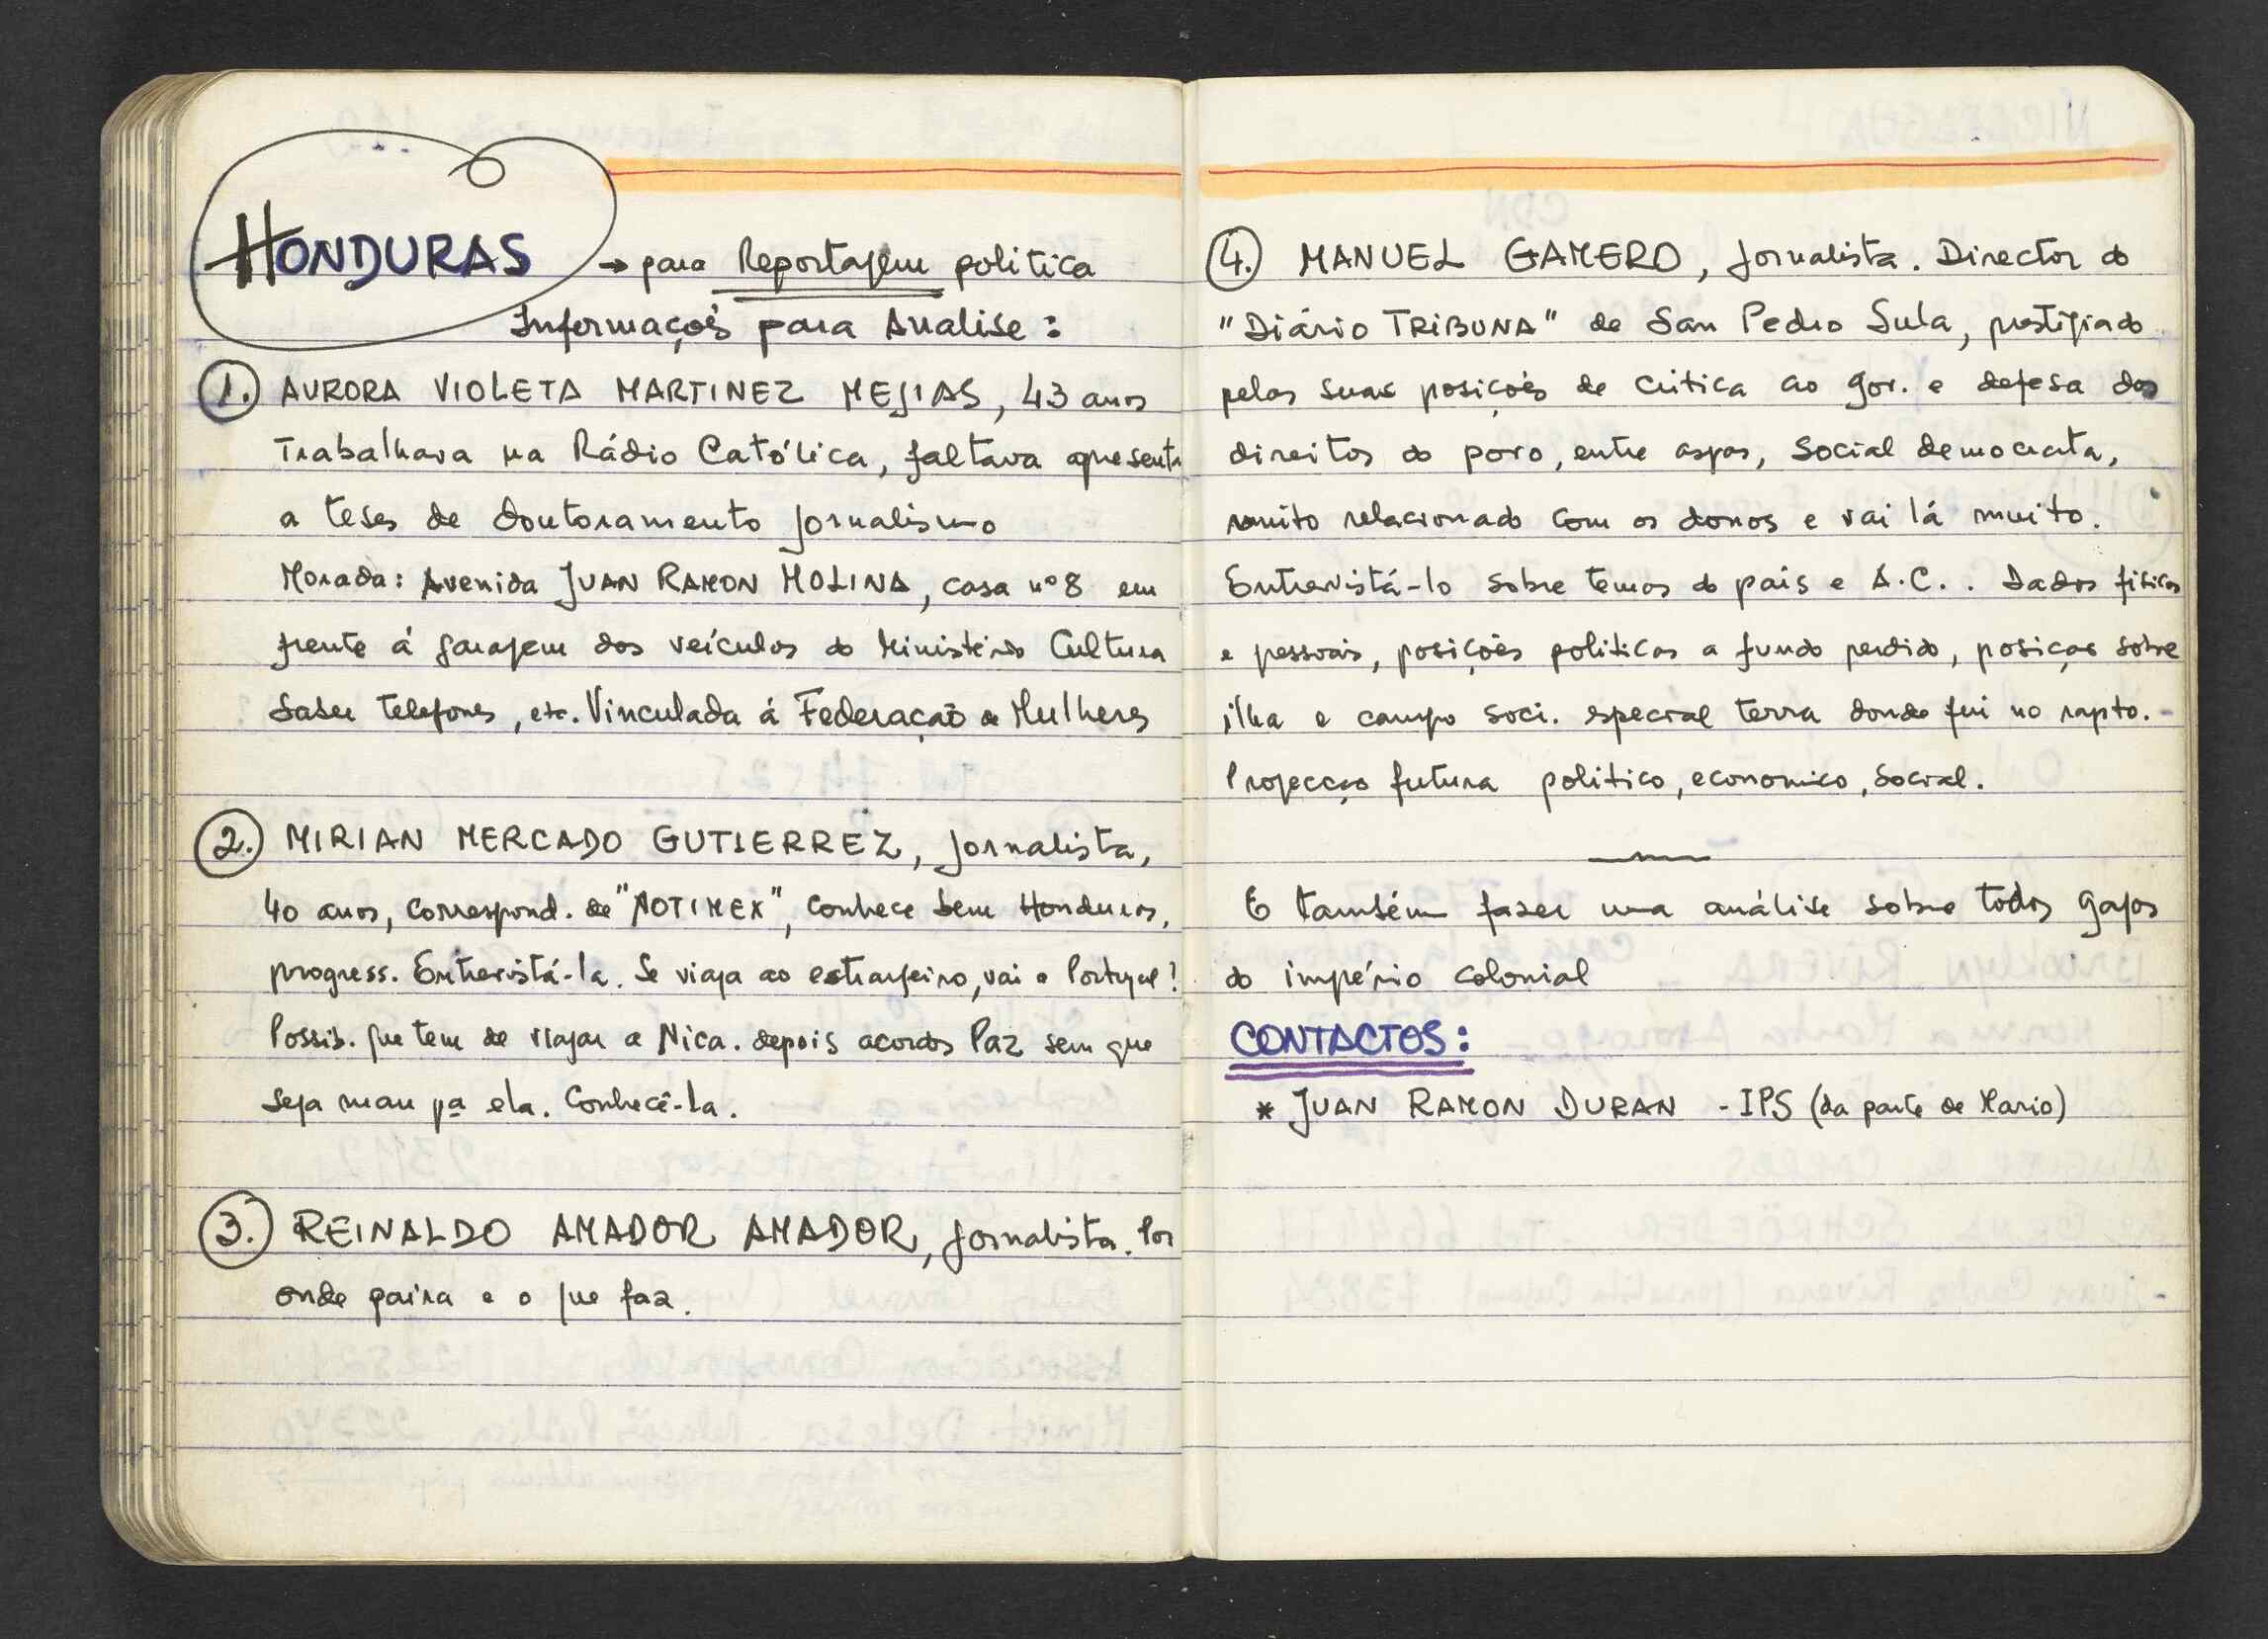 HONDURAS → para Reportagem politica
Informações para Analise:
1. AURORA VIOLETA MARTINEZ MEJIAS, 43 anos
Trabalhava na Rádio Católica, faltava apresentar
a teses de doutoramento jornalismo
Morada: Avenida JUAN RAMON MOLINA, casa nº 8 em
frente á garajem dos veículos do Ministério Cultura
Saber telefones, etc. Vinculada á Federação de Mulheres
2. MIRIAN MERCADO GUTIERREZ, jornalista,
40 anos, correspond. de "NOTIMEX", conhece bem Honduras,
progress. Entrevistá-la. Se viaja ao estranjeiro, vai a Portugal?
Possib. que tem de viajar a Nica. depois acordos Paz sem que
seja mau pª ela. Conhecê-la.
3. REINALDO AMADOR AMADOR, jornalista. Por
onde paira e o que faz.
4. MANUEL GAMERO, jornalista. Director do
"Diário TRIBUNA" de San Pedro Sula, prestigiado
pelas suas posições de critica ao gov. e defesa dos
direitos do povo, entre aspas, social democrata,
muito relacionado com os donos e vai lá muito.
Entrevistá-lo sobre temas do país e A.C.. Dados fisicos
e pessoais, posições politicas a fundo perdido, posição sobre
ilha e campo soci. especial terra donde fui no rapto.-
Projecção futura politico, economico, social.
E também fazer uma análise sobre todos gajos
do império colonial
CONTACTOS:
* JUAN RAMON DURAN - IPS (da parte de Mario)